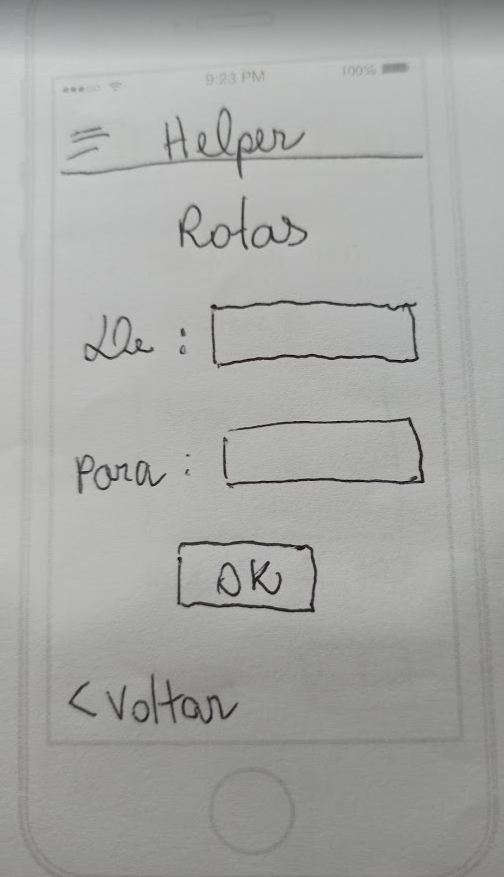 9:23 PM 100%
Helper
Rotas
De :
Para :
OK
< Voltar